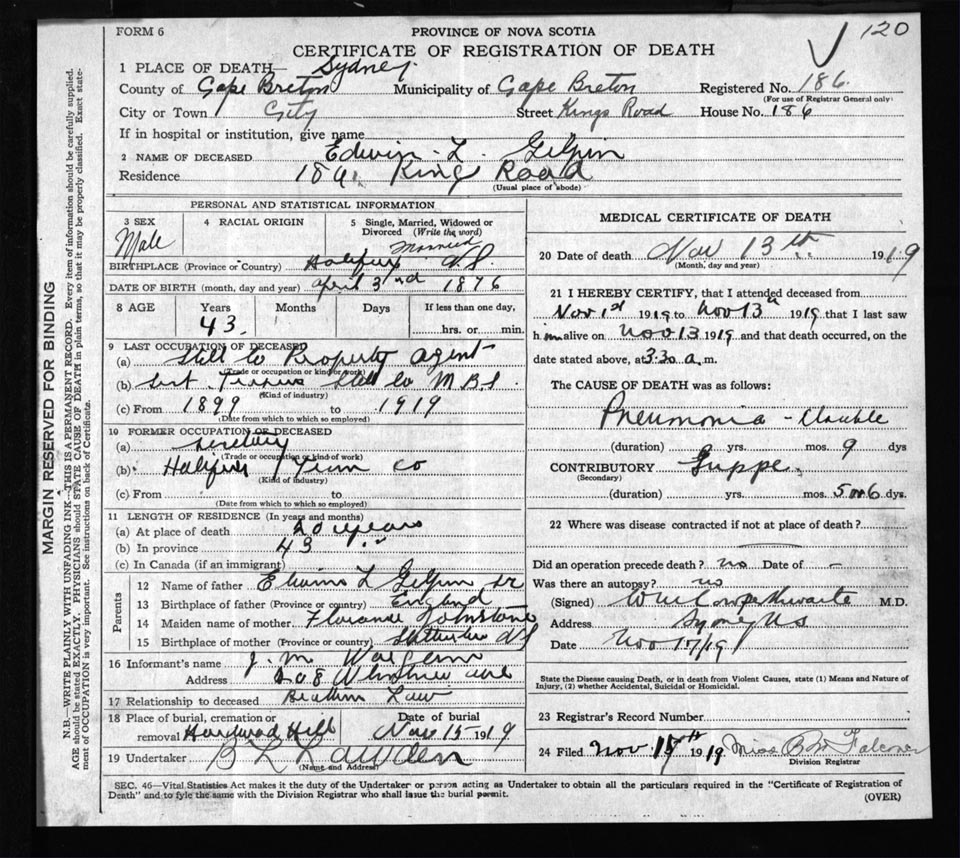 120
FORM 6
PROVINCE OF NOVA SCOTIA
CERTIFICATE OF REGISTRATION OF DEATH
1 PLACE OF DEATH— Sydney
County of Cape Breton Municipality of Cape Breton Registered No. 186
(For use of Registrar General only)
City or Town City Street Kings Road House No. 186
If in hospital or institution, give name
2 NAME OF DECEASED Edwin L. Gilpin
Residence 186 King Road
(Usual place of abode)
PERSONAL AND STATISTICAL INFORMATION
3 SEX 4 RACIAL ORIGIN 5 Single, Married, Widowed or
Divorced (Write the word)
Male Married
BIRTHPLACE (Province or Country) Halifax N.S.
DATE OF BIRTH (month, day and year) April 3rd 1876
8 AGE Years Months Days If less than one day,
43 hrs. or min.
9 LAST OCCUPATION OF DECEASED
(a) Steel Co Property agent
(Trade or occupation or kind of work)
(b) Steel Co
(Kind of industry)
(c) From 1899 to 1919
(Date from which to which so employed)
10 FORMER OCCUPATION OF DECEASED
(a) Secretary
(Trade or occupation or kind of work)
(b) Halifax Co
(Kind of industry)
(c) From to
(Date from which to which so employed)
11 LENGTH OF RESIDENCE (In years and months)
(a) At place of death 20 years
(b) In province 43 "
(c) In Canada (if an immigrant)
Parents
12 Name of father L Gilpin Sr
13 Birthplace of father (Province or country) England
14 Maiden name of mother Johnstone
15 Birthplace of mother (Province or country) NS
16 Informant's name J. M.
Address
17 Relationship to deceased Law
18 Place of burial, cremation or Date of burial
removal Hardwood Hill Nov 15 1919
19 Undertaker
(Name and Address)
MEDICAL CERTIFICATE OF DEATH
20 Date of death Nov 13th 1919
(Month, day and year)
21 I HEREBY CERTIFY, that I attended deceased from
Nov 1st 1919 to Nov 13th 1919 that I last saw
him alive on Nov 13 1919 and that death occurred, on
date stated above, at 3.30 a.m.
The CAUSE OF DEATH was as follows:
Pneumonia - Double
(duration) yrs. mos. 9 dys
CONTRIBUTORY Grippe
(Secondary)
(duration) yrs. mos. 5 or 6 dys.
22 Where was disease contracted if not at place of death?
Did an operation precede death? no Date of —
Was there an autopsy? no
(Signed) M.D.
Address Sydney NS
Date Nov 17/19
State the Disease causing Death, or in death from Violent Causes, state (1) Means and Nature of
Injury, (2) whether Accidental, Suicidal or Homicidal.
23 Registrar's Record Number
24 Filed Nov 1919 Miss B M Falconer
Division Registrar
SEC. 46—Vital Statistics Act makes it the duty of the Undertaker or person acting as Undertaker to obtain all the particulars required in the "Certificate of Registration of
Death" and to fyle the same with the Division Registrar who shall issue the burial permit.
(OVER)
MARGIN RESERVED FOR BINDING
N.B.—WRITE PLAINLY WITH UNFADING INK—THIS IS A PERMANENT RECORD. Every item of information should be carefully supplied.
AGE should be stated EXACTLY. PHYSICIANS should STATE CAUSE OF DEATH in plain terms, so that it may be properly classified. Exact state-
ment of OCCUPATION is very important. See instructions on back of Certificate.